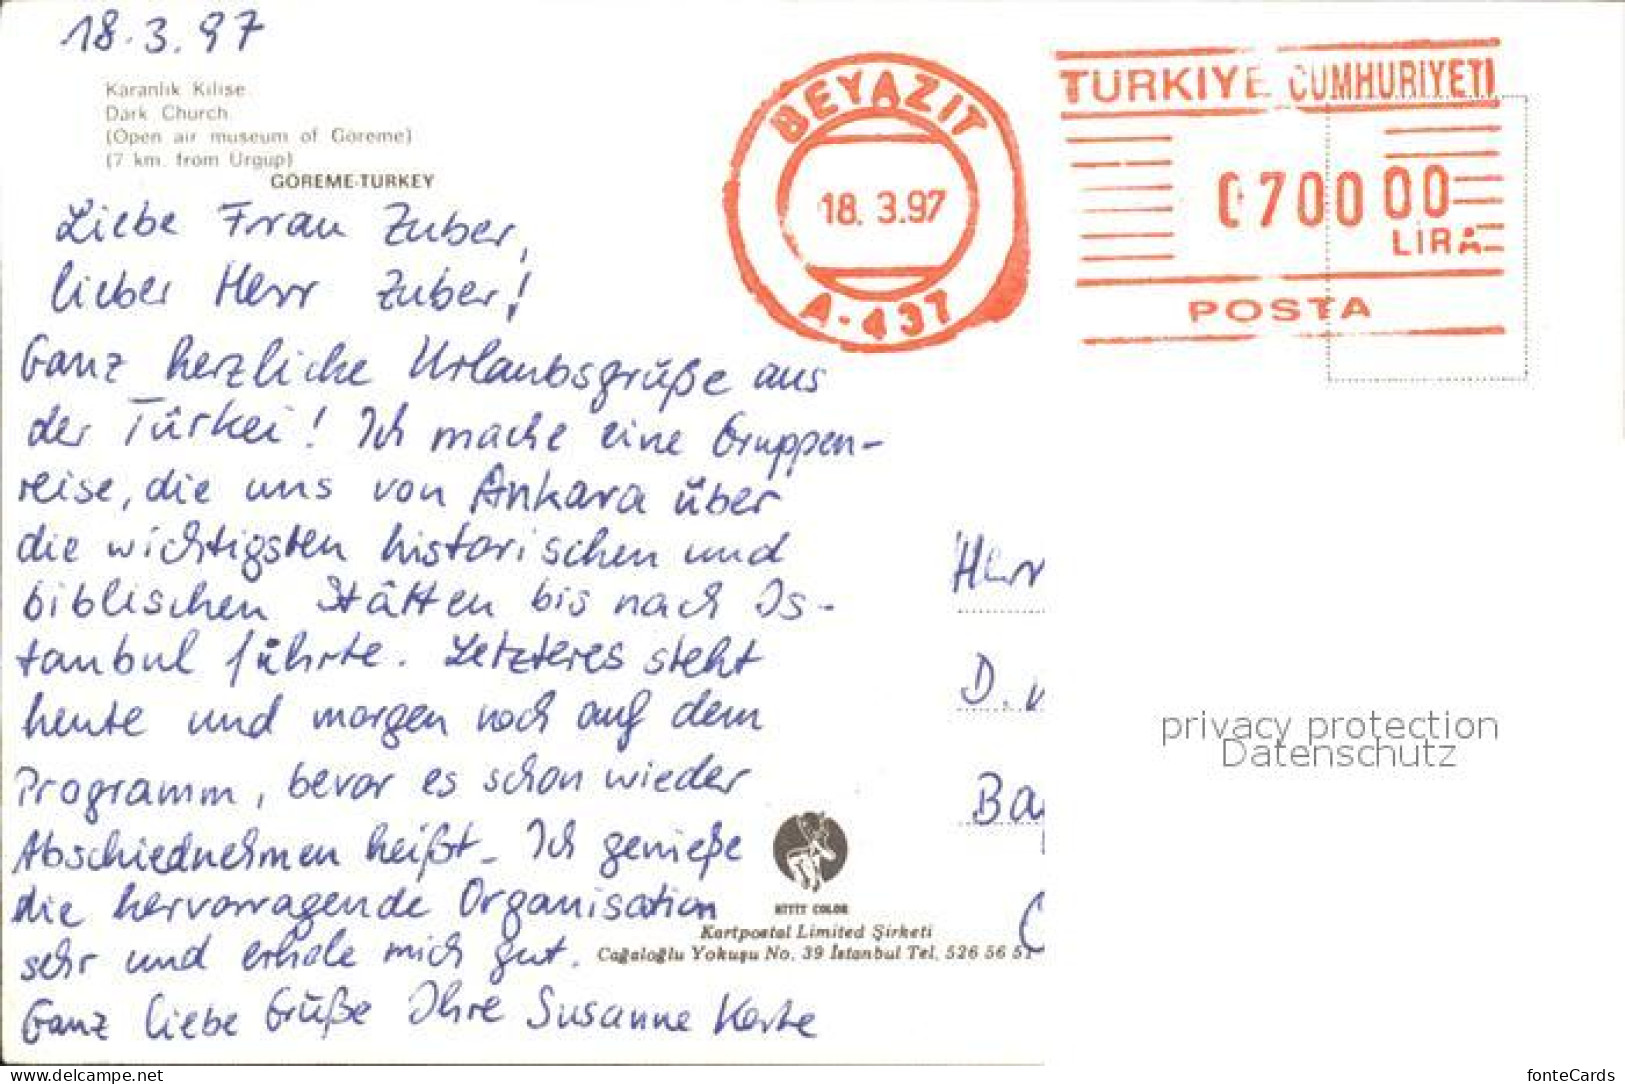 18.3.97
Karanlık Kilise
Dark Church
(Open air museum of Göreme)
(7 km. from Ürgüp)
GÖREME-TURKEY
Liebe Frau Zuber,
lieber Herr Zuber!
Ganz herzliche Urlaubsgrüße aus
der Türkei! Ich mache eine Gruppen-
reise, die uns von Ankara über
die wichtigsten historischen und
biblischen Stätten bis nach Is-
tanbul führte. Letzteres steht
heute und morgen noch auf dem
Programm, bevor es schon wieder
Abschiednehmen heißt. Ich genieße
die hervorragende Organisation
sehr und erhole mich gut.
Ganz liebe Grüße Ihre Susanne
BEYAZIT
18. 3.97
A-437
TÜRKİYE CUMHURİYETİ
070000
LİRA
POSTA
Herr
D.
Ba
privacy protection
Datenschutz
HİTİT COLOR
Kartpostal Limited Şirketi
Cağaloğlu Yokuşu No. 39 İstanbul Tel. 526 56 51
www.delcampe.net
fonteCards